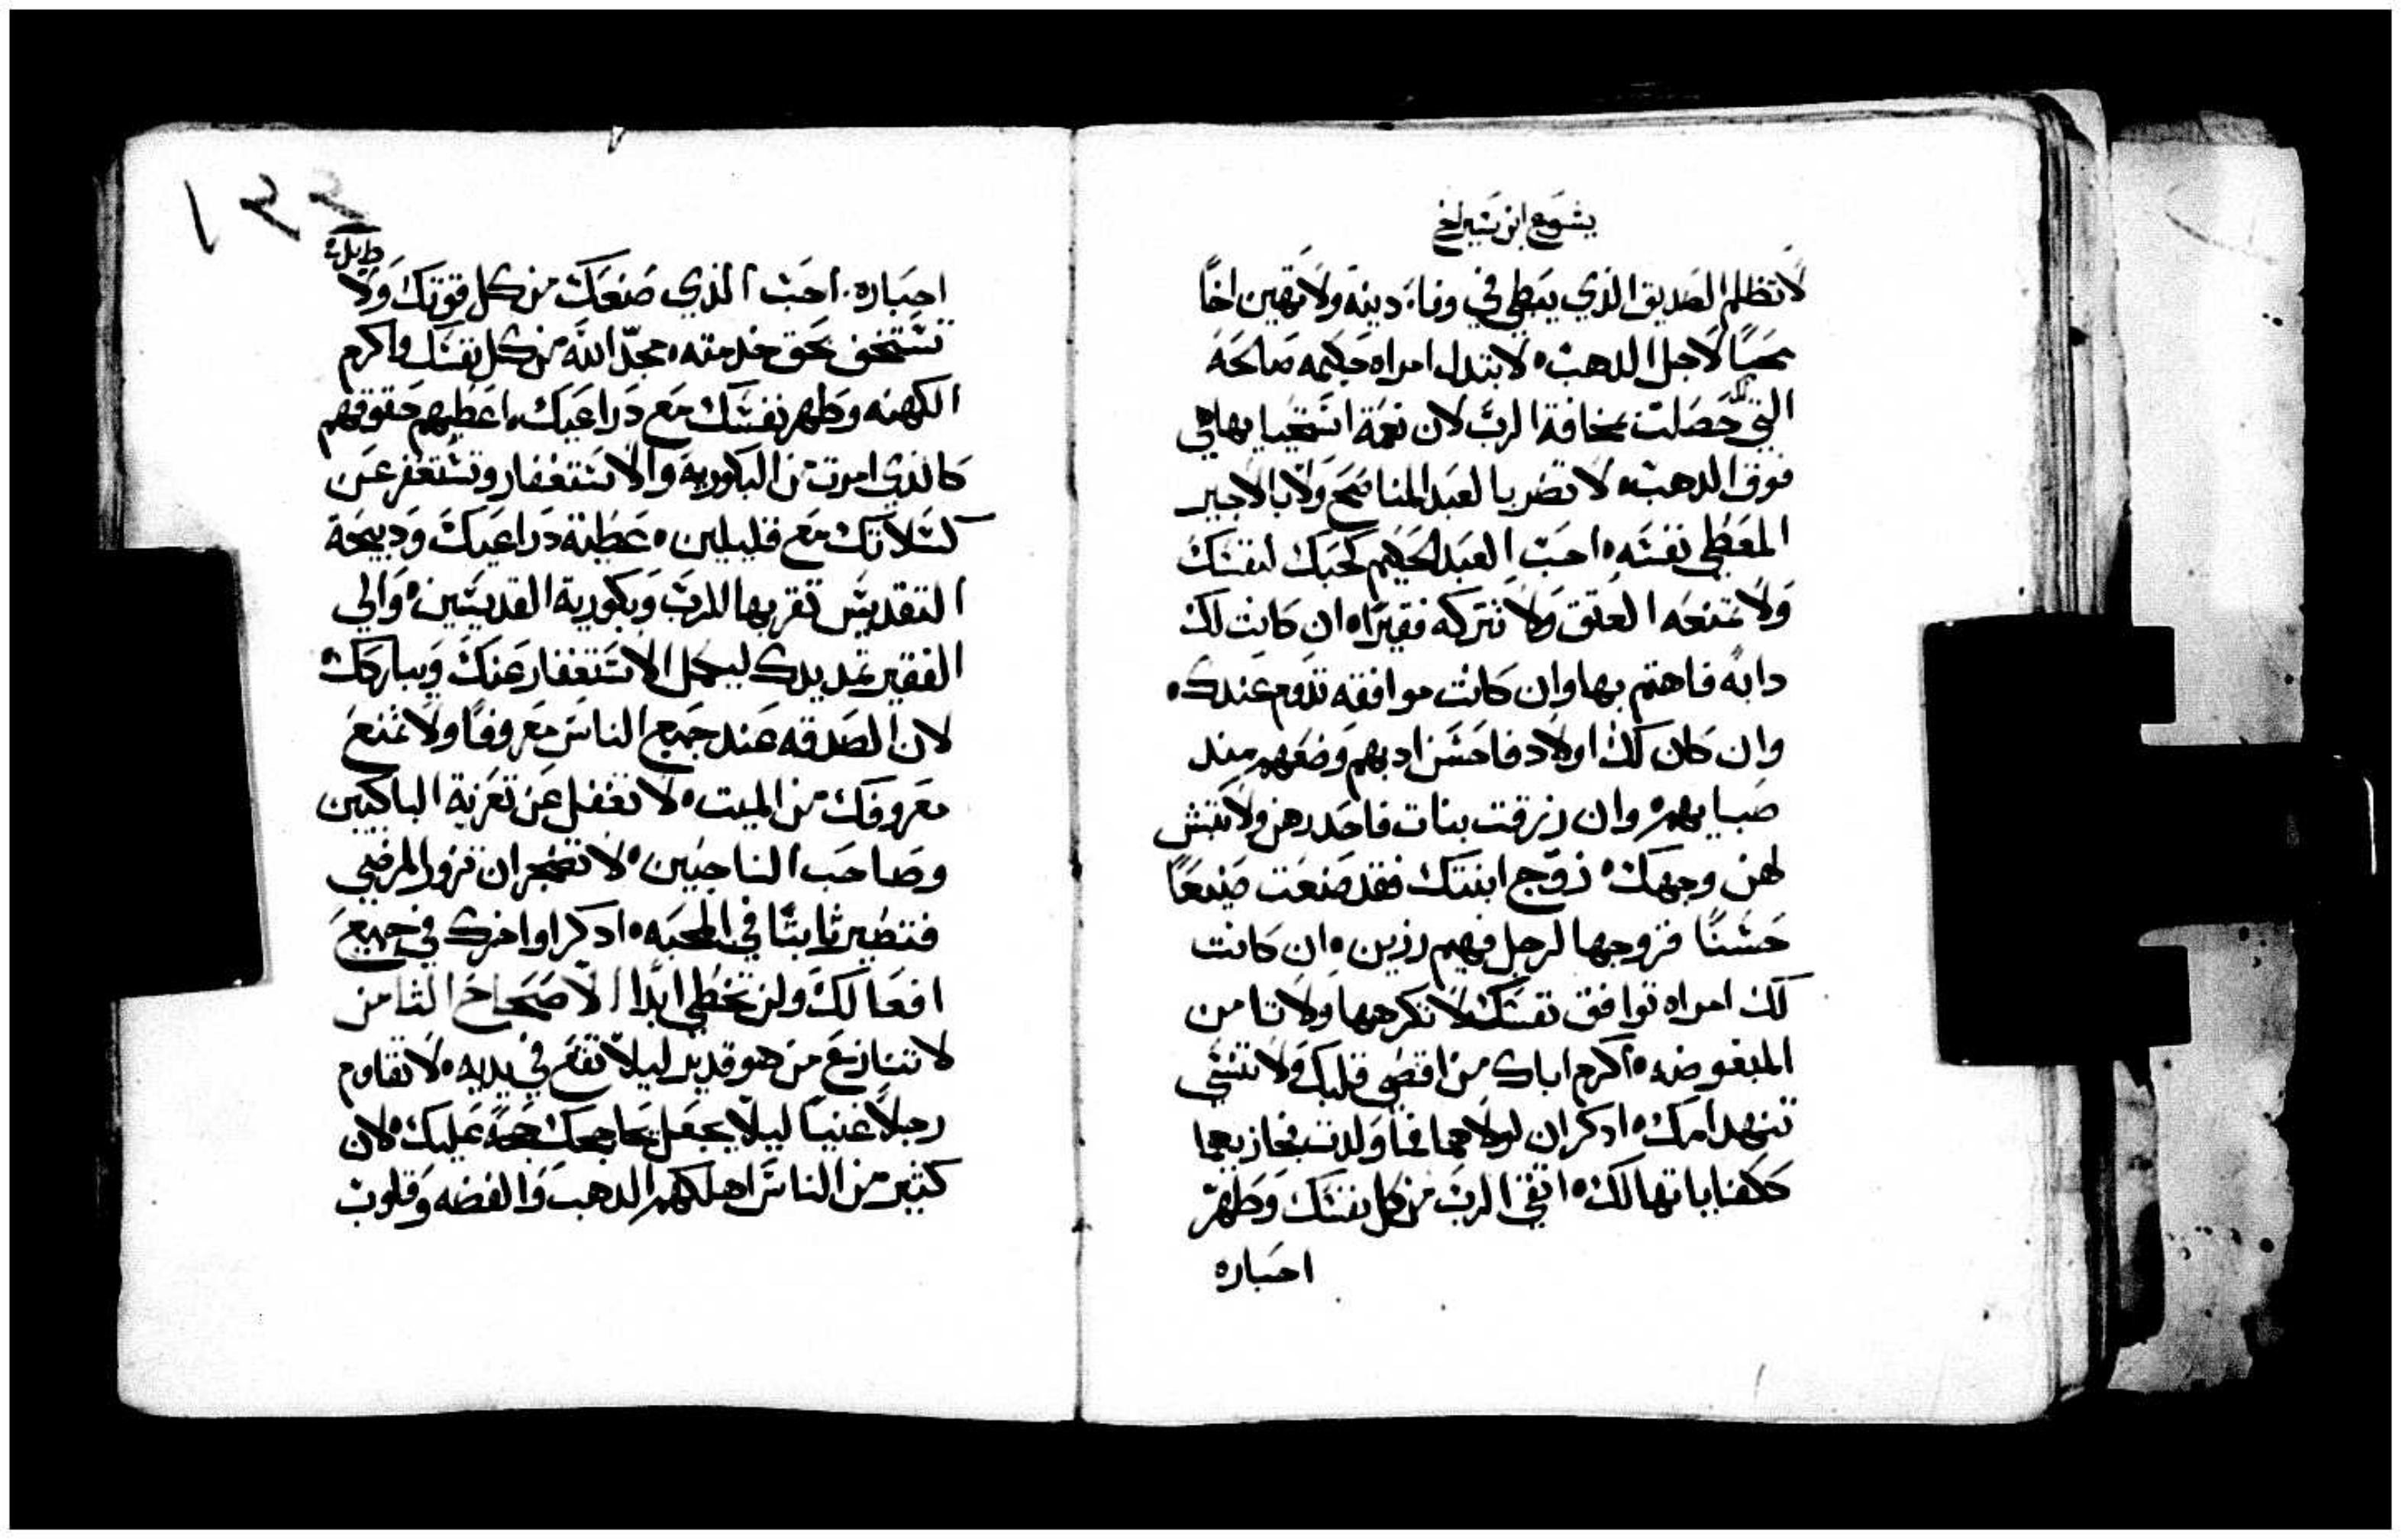 يشوع ابن شيراخ
لا تظلم الصديق الذي يبطي في وفاء دينه ولا تهين اخًا
محبًا لاجل الدهب. لا بتدل امراه حكيمه صالحه
التي حصلت بمخافة الرب لان نعمة استحيايها هي
فوق الدهب. لا تضر بالعبد المناصح ولا بالاجير
المعطي نفسه. احب العبد الحكيم كحبك لنفسك
ولا تمنعه العتق ولا تتركه فقيرًا. ان كانت لك
دابه فاهتم بها وان كانت موافقه تدوم عندك.
وان كان لك اولاد فاحسن ادبهم وضعهم مند
صبايهم. وان رزقت بنات فاحدرهن ولا تبش
لهن وجهك. زوّج ابنتك فقد صنعت صنيعًا
حسنًا فزوجها لرجل فهيم رزين. ان كانت
لك امراه توافق نفسك لا تكرهها ولا تامن
المبغوضه. اكرم اباك من اقصى قلبك ولا تنسي
تنهد امك. ادكر ان لولاهما لما ولدت فجازيهما
كلفاياتها لك. اتقي الرب من كل نفسك وطهر
احباره
١٣٢
احباره. احب الذي صنعك من كل قوتك ولا
تستخف بحق خدمته. مجّد الله من كل نفسك واكرم
الكهنه وطهر نفسك مع دراعيك. اعطيهم حقوقهم
كالذي امرت من البكوريه والاستغفار وتستغفر عن
كسلاتك مع قليلين. عطية دراعيك ودبيحة
التقديس تقربها للرب وبكورية القديسين. والي
الفقير تمد يدك ليكمل الاستغفار عنك ويباركك.
لان الصدقه عند جميع الناس معروفًا ولا تمنع
معروفك من الميت. لا تغفل عن تعزية الباكيين
وصاحب الناحبين. لا تضجر ان تزور المرضي
فتصير ثابتًا في المحبه. ادكر اواخرك في جميع
افعالك ولن تخطي ابدًا الاصحاح الثامن
لا تنازع من هو قدير ليلا تقع في يديه. لا تقاوم
رجلا غنيًا ليلا يجعل عليك. لان
كثير من الناس اهلكهم الدهب والفضه وقلوب